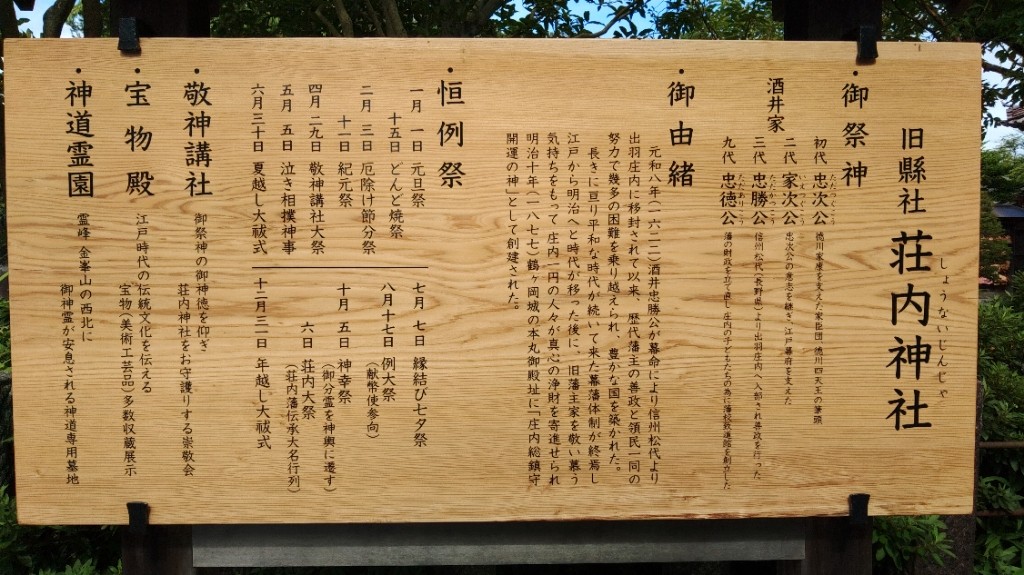 旧縣社 荘内神社
しょうないじんじゃ
・御祭神
酒井家
初代 忠次公 徳川家康を支えた家臣団「徳川四天王」の筆頭
ただつぐこう
二代 家次公 忠次公の意志を継ぎ、江戸幕府を支えた
いえつぐこう
三代 忠勝公 信州松代(長野県)より出羽庄内へ入部され善政を行った
ただかつこう
九代 忠徳公 藩の財政を立て直し、庄内の子どもたちの為に藩校致道館を創設した
ただありこう
・御由緒
元和八年(一六二二)酒井忠勝公が幕命により信州松代より
出羽庄内に移封されて以来、歴代藩主の善政と領民一同の
努力で幾多の困難を乗り越えられ、豊かな国を築かれた。
長きに亘り平和な時代が続いて来た幕藩体制が終焉し
江戸から明治へと時代が移った後に、旧藩主家を敬い慕う
気持ちをもって庄内一円の人々が真心の浄財を寄進せられ
明治十年(一八七七)鶴ヶ岡城の本丸御殿址に「庄内総鎮守
開運の神」として創建された。
・恒例祭
一月 一日 元旦祭
十五日 どんど焼祭
二月 三日 厄除け節分祭
十一日 紀元祭
四月二九日 敬神講社大祭
五月 五日 泣き相撲神事
六月三十日 夏越し大祓式
七月 七日 縁結び七夕祭
八月十七日 例大祭
(献幣使参向)
十月 五日 神幸祭
(御分霊を神輿に遷す)
六日 荘内大祭
(荘内藩伝承大名行列)
十二月三一日 年越し大祓式
・敬神講社
御祭神の御神徳を仰ぎ
荘内神社をお守護りする崇敬会
・宝物殿
江戸時代の伝統文化を伝える
宝物(美術工芸品)多数収蔵展示
・神道霊園
霊峰 金峯山の西北に
御神霊が安息される神道専用墓地